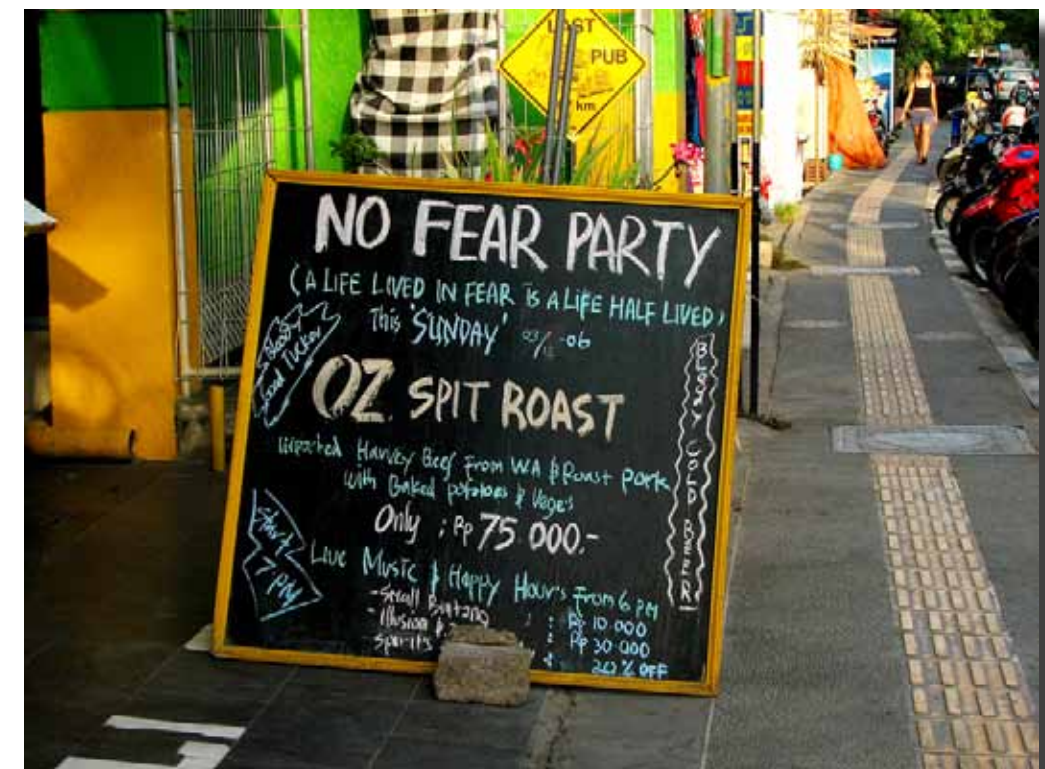 LOST
PUB
km
NO FEAR PARTY
(A LIFE LIVED IN FEAR IS A LIFE HALF LIVED)
This 'SUNDAY' 03/12-06
Bloody
Good Tucker
OZ SPIT ROAST
Imported Harvey Beef From WA & Roast Pork
with Baked potatoes & Vege's
Only : Rp 75 000.-
BLOODY COLD BEER
Start
7 PM
Live Music & Happy Hour's From 6 pm
- Small Bintang : Rp 10 000
- Illusion : Rp 30 000
- Spirits 20% OFF